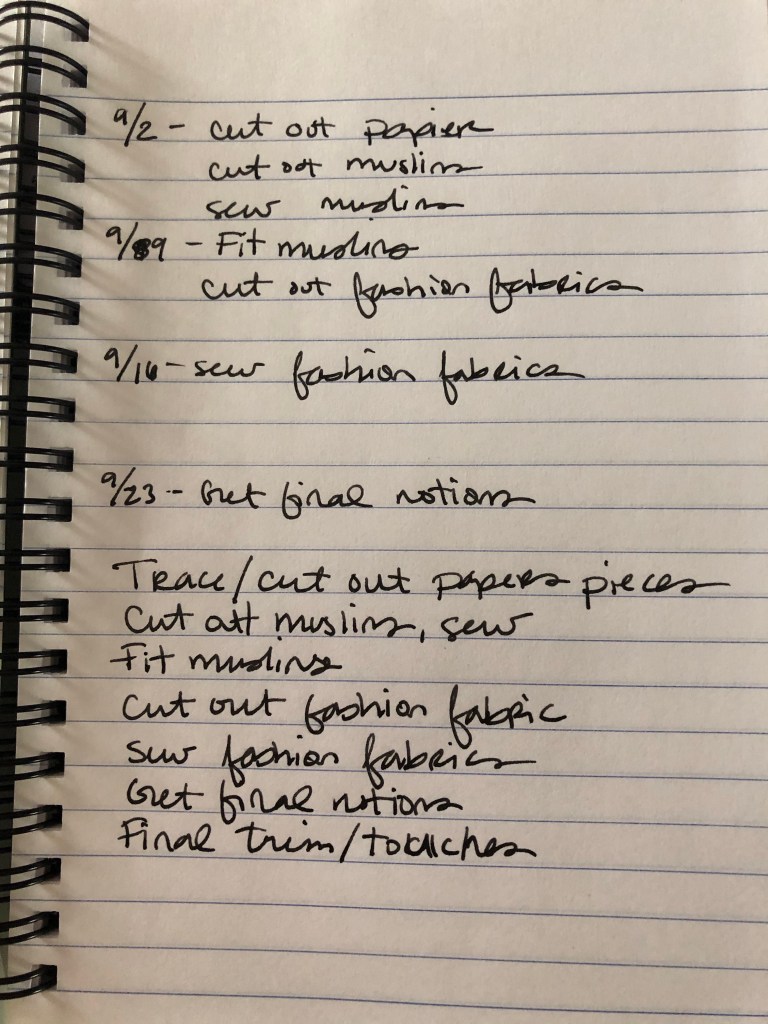 9/2 - cut out papier
cut out muslins
sew muslins
9/9 - Fit muslins
cut out fashion fabrics
9/16 - sew fashion fabrics
9/23 - Get final notions
Trace/cut out papers pieces
Cut out muslins, sew
Fit muslins
Cut out fashion fabric
Sew fashion fabrics
Get final notions
Final trim/touches